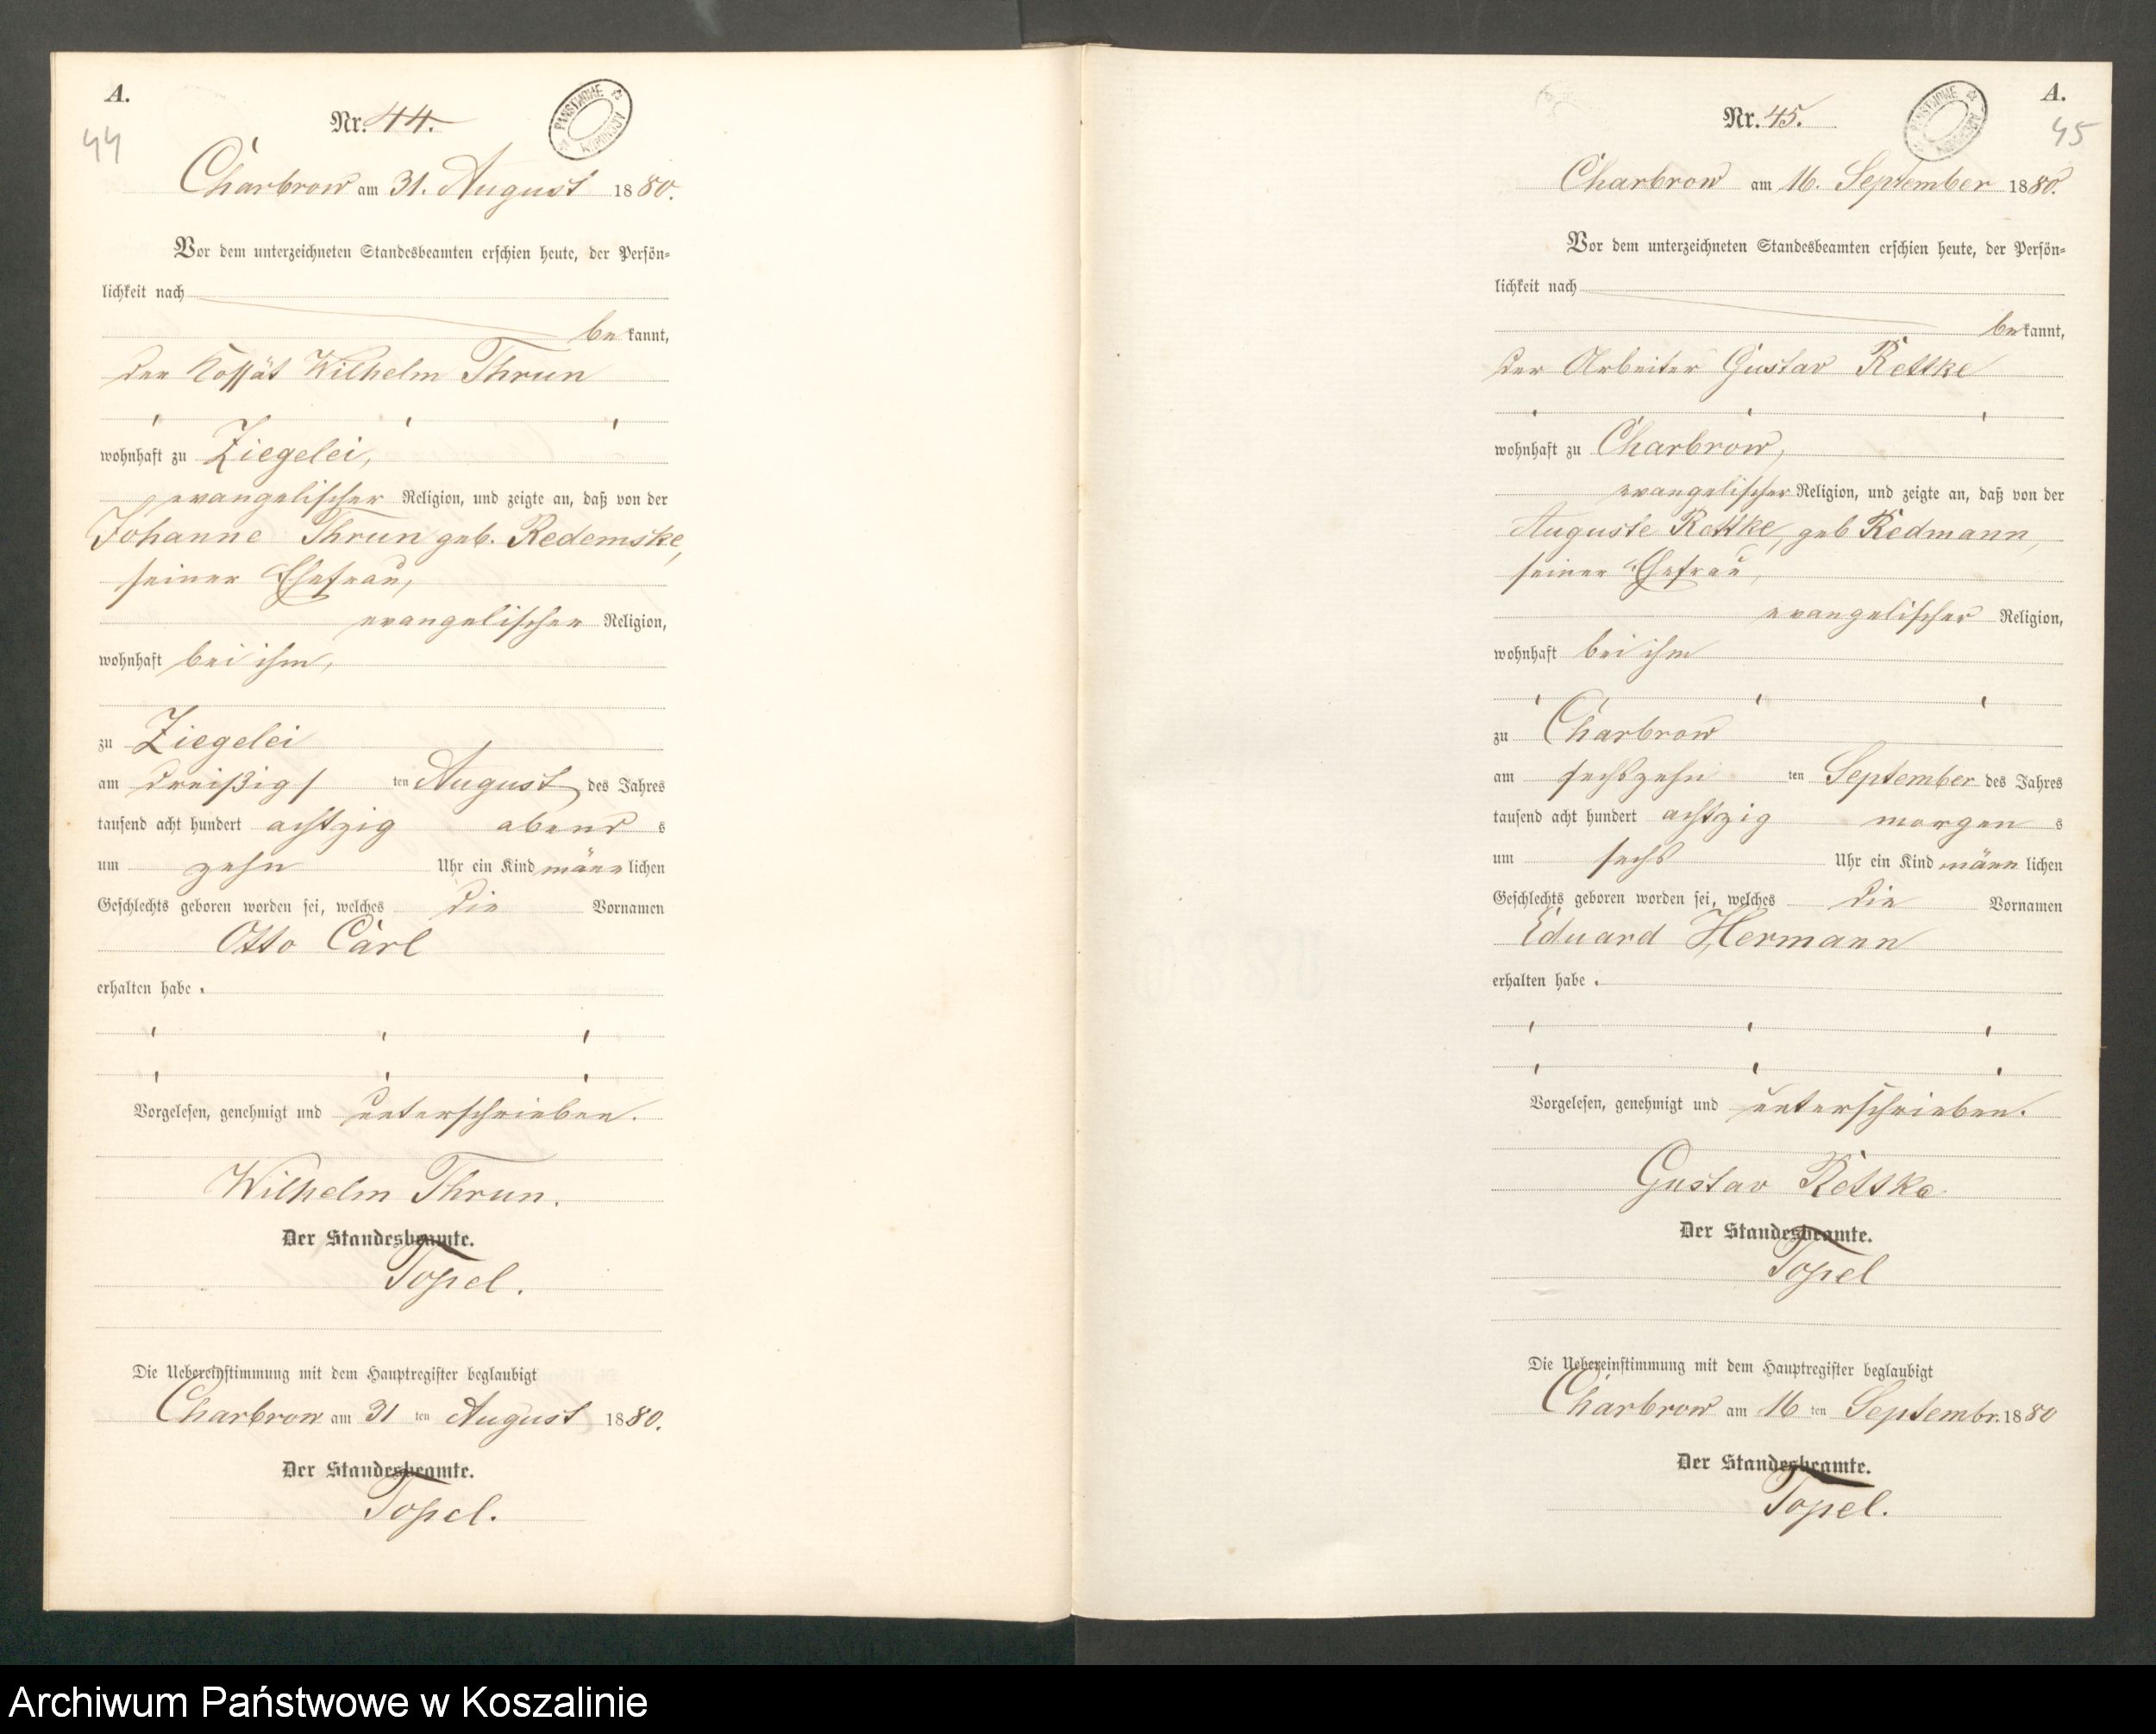 A.
44
Nr. 44.
PAŃSTWOWE
ARCHIWUM
Charbrow am 31. August 1880.
Vor dem unterzeichneten Standesbeamten erschien heute, der Persön-
lichkeit nach
bekannt,
der Kossät Wilhelm Thrun
wohnhaft zu Ziegelei,
evangelischer Religion, und zeigte an, daß von der
Johanne Thrun geb. Redemske,
seiner Ehefrau,
evangelischer Religion,
wohnhaft bei ihm,
zu Ziegelei
am dreißigs ten August des Jahres
tausend acht hundert achtzig abends
um zehn Uhr ein Kind männlichen
Geschlechts geboren worden sei, welches die Vornamen
Otto Carl
erhalten habe.
Vorgelesen, genehmigt und unterschrieben.
Wilhelm Thrun.
Der Standesbeamte.
Topel.
Die Uebereinstimmung mit dem Hauptregister beglaubigt
Charbrow am 31 ten August 1880.
Der Standesbeamte.
Topel.
A.
45
Nr. 45.
PAŃSTWOWE
ARCHIWUM
Charbrow am 16. September 1880.
Vor dem unterzeichneten Standesbeamten erschien heute, der Persön-
lichkeit nach
bekannt,
der Arbeiter Gustav Rettke
wohnhaft zu Charbrow,
evangelischer Religion, und zeigte an, daß von der
Auguste Rettke, geb Redmann,
seiner Ehefrau,
evangelischer Religion,
wohnhaft bei ihm
zu Charbrow
am sechszehn ten September des Jahres
tausend acht hundert achtzig morgens
um sechs Uhr ein Kind männlichen
Geschlechts geboren worden sei, welches die Vornamen
Eduard Hermann
erhalten habe.
Vorgelesen, genehmigt und unterschrieben.
Gustav Rettke
Der Standesbeamte.
Topel
Die Uebereinstimmung mit dem Hauptregister beglaubigt
Charbrow am 16 ten Septembr. 1880
Der Standesbeamte.
Topel.
Archiwum Państwowe w Koszalinie